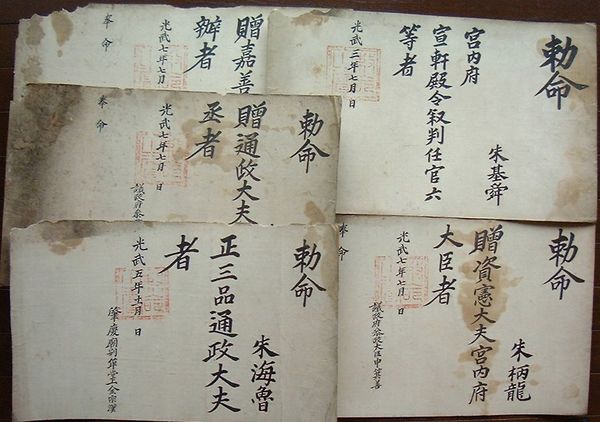 勅命
朱基舜
宮内府
宣軒殿令叙判任官六
等者
光武三年七月 日
贈嘉善
辦者
光武七年七月
奉命
勅命
贈通政大夫
丞者
光武七年七月 日
議政府叅
奉命
勅命
朱柄龍
贈資憲大夫宮内府
大臣者
光武七年七月 日
議政府叅政大臣申箕善
奉命
勅命
朱海魯
正三品通政大夫
者
光武五年十一月 日